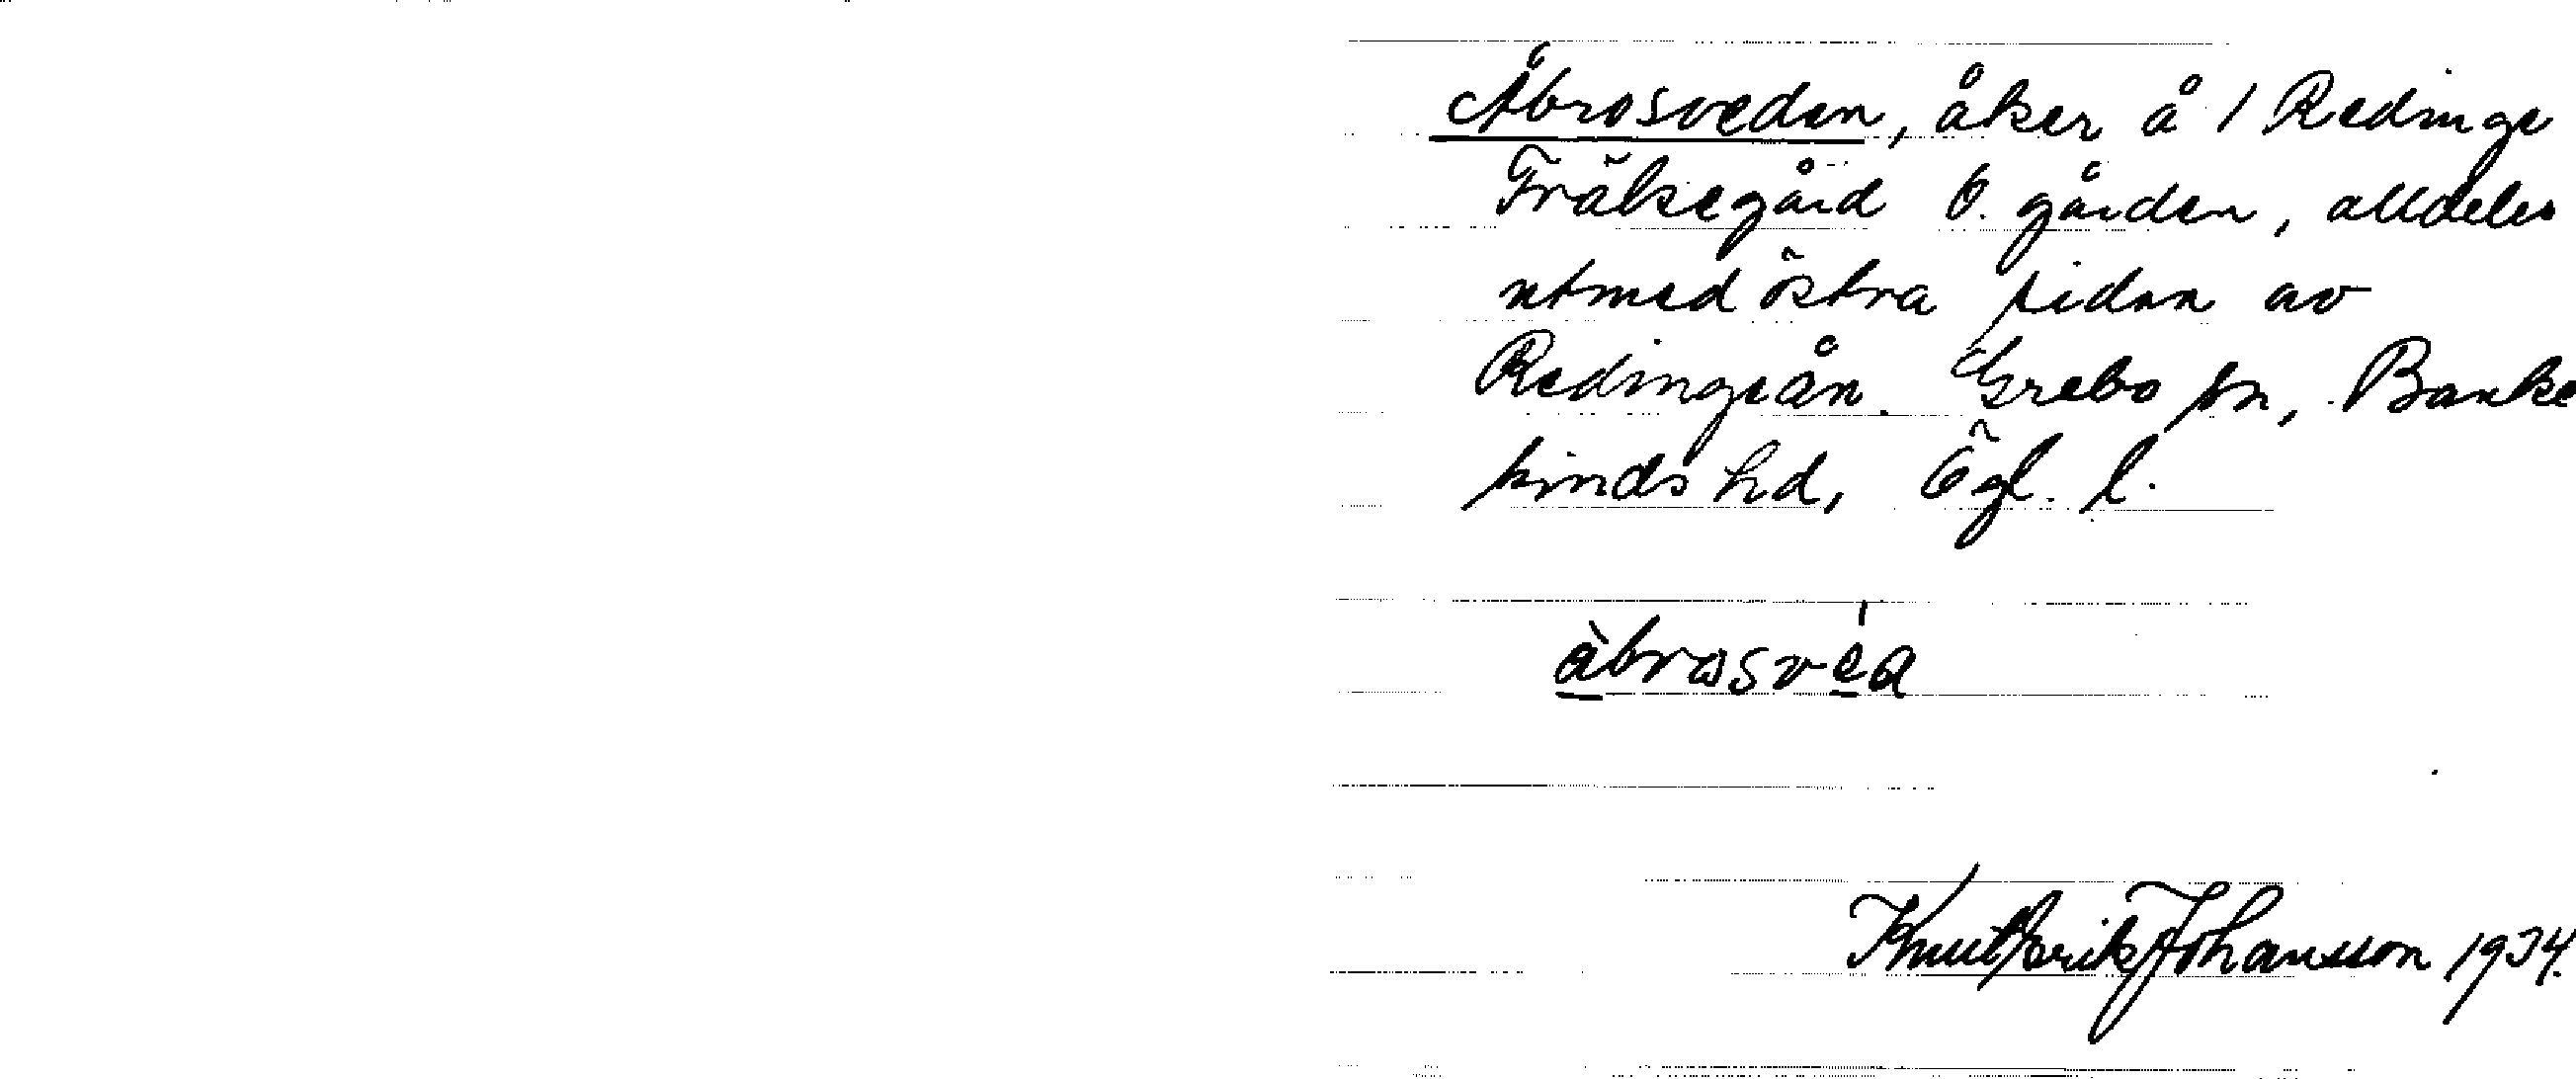 Åbrosveden, åker å 1 Redinge
Frälsegård Ö. gården, alldeles
utmed östra sidan av
Redingeån. Grebo sn, Banke
kinds hd, Ögl. l.
àbrosvéa
Knut Erik Johansson 1934.